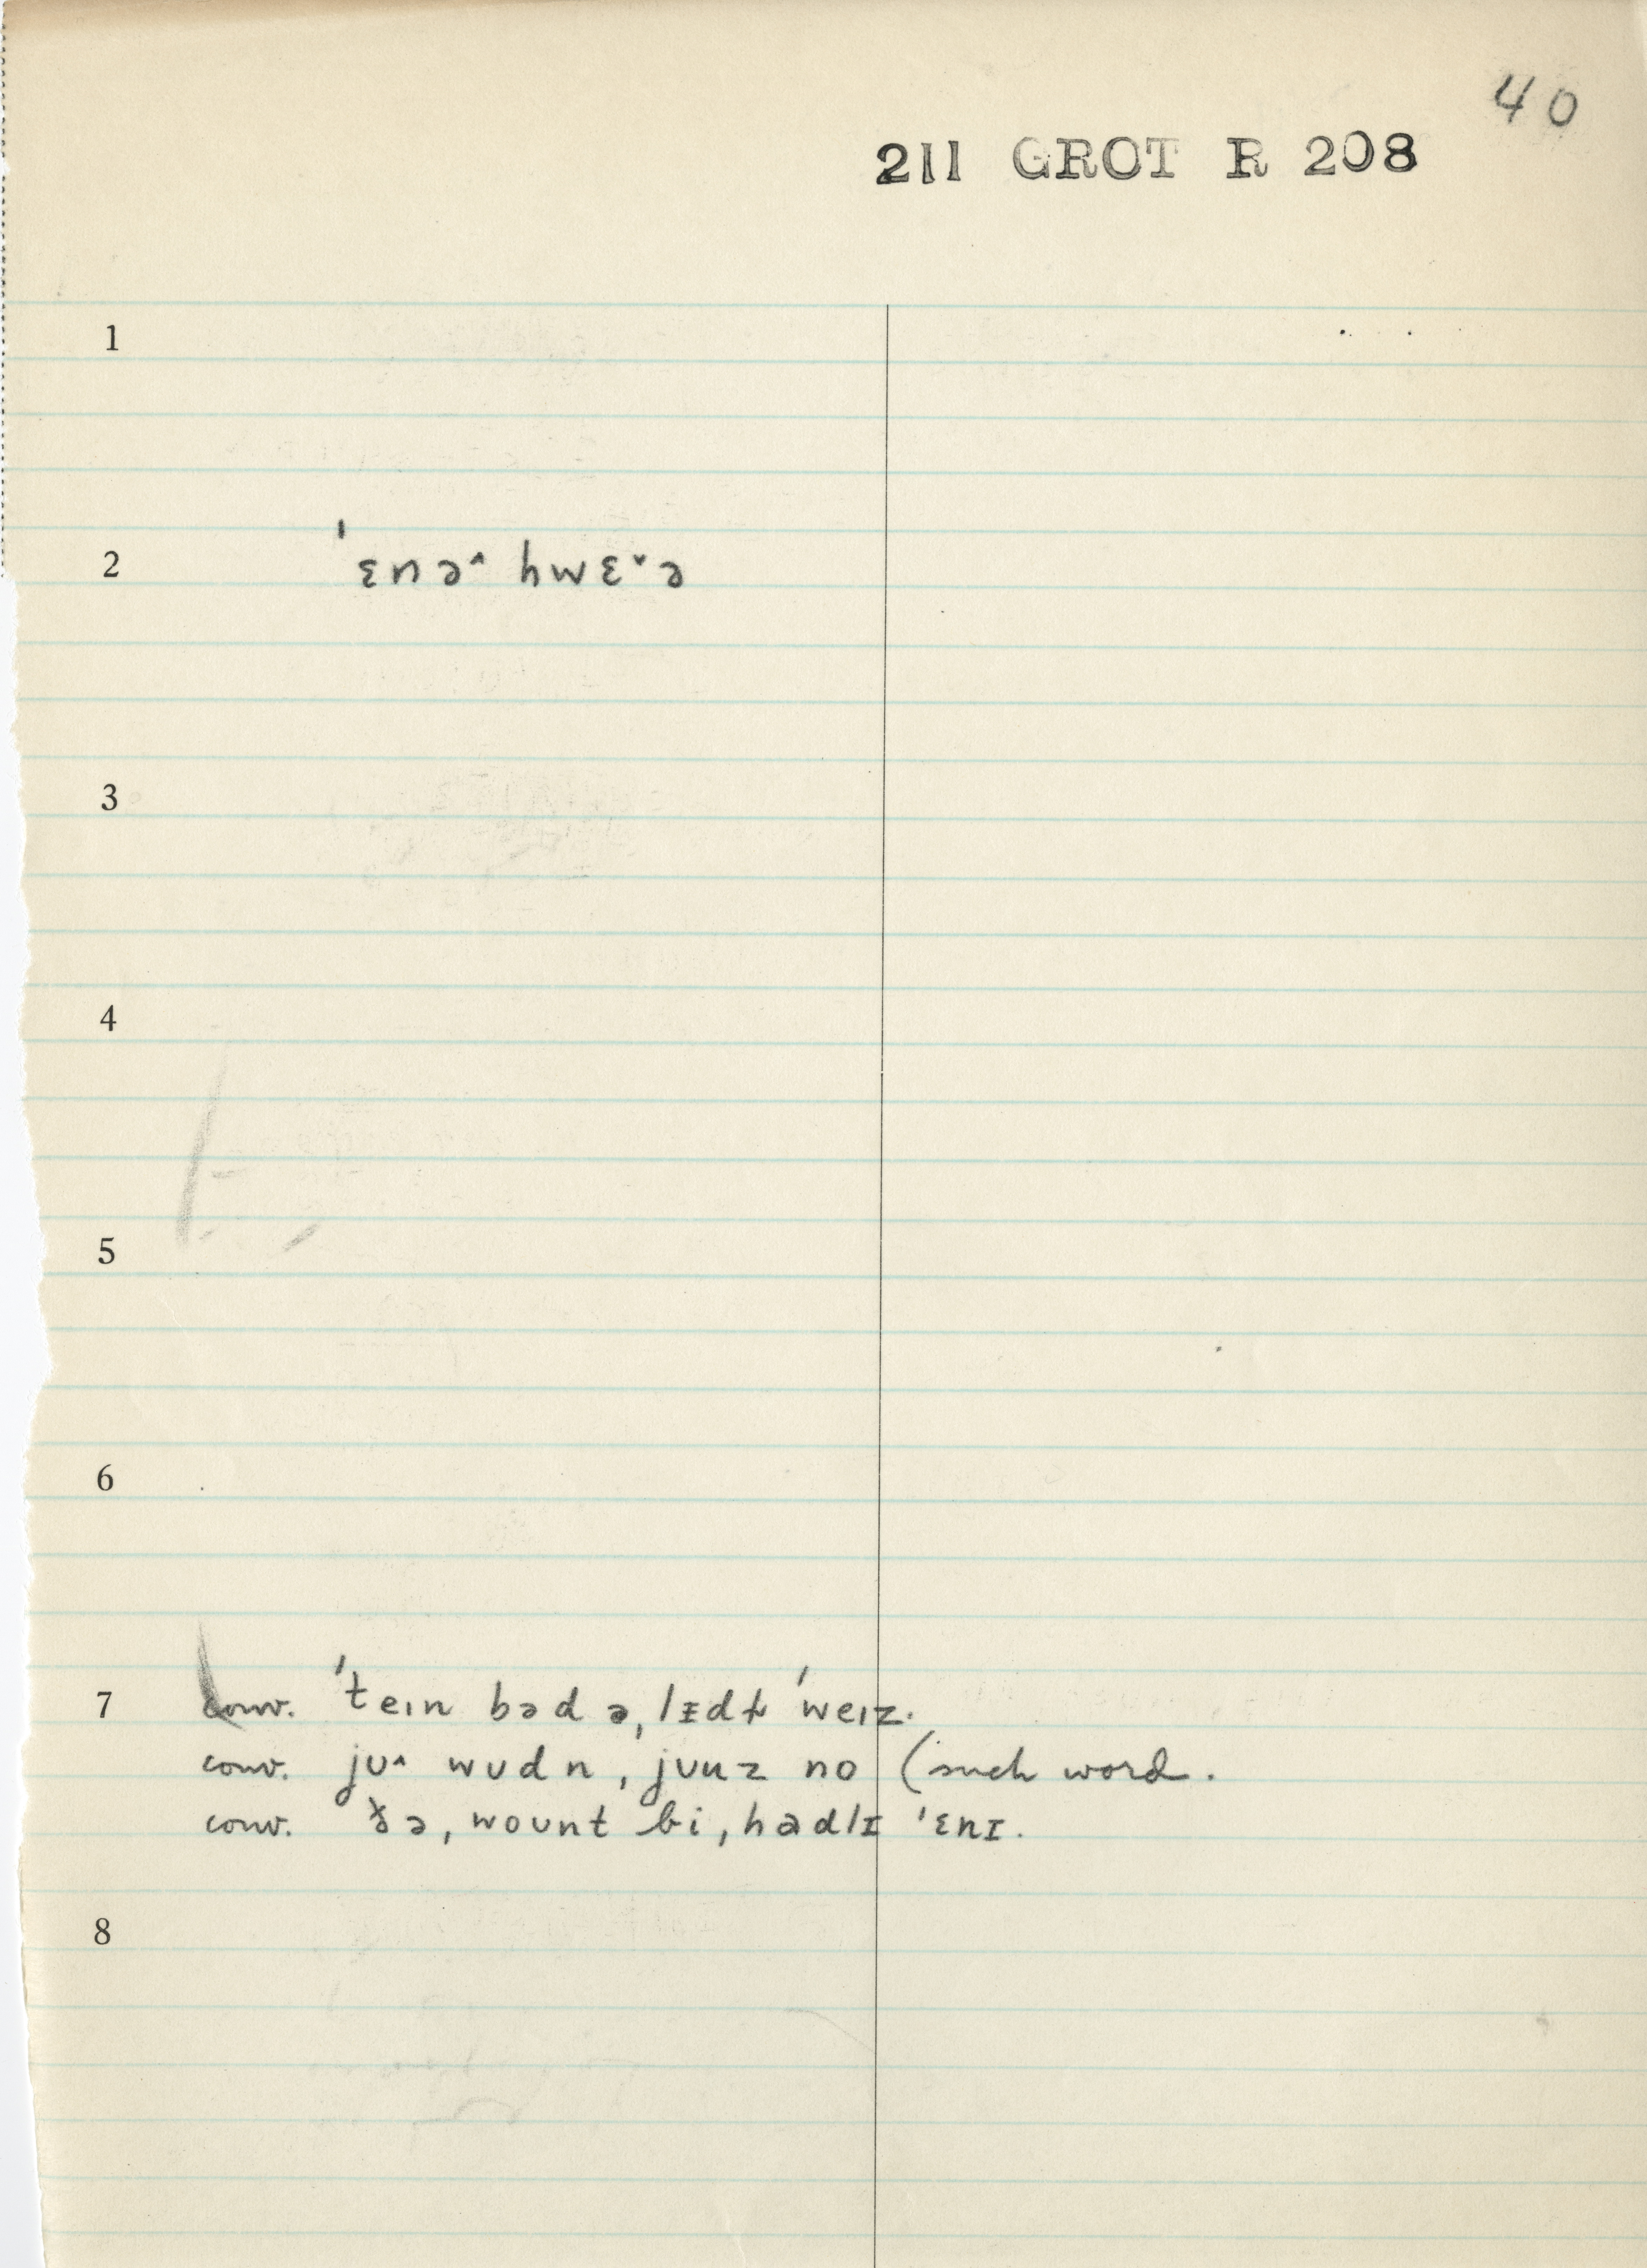 40
211 GROT R 208
1
2 ˈɛnə^ hwɛˇə
3
4
5
6
7 conv. ˈteɪn bəd ə, lɪdɫ ˈweɪz.
conv. jʊ^ wʊdn, jʊuz no (such word.
conv. ðə, wount bi, hadlɪ ˈɛnɪ.
8